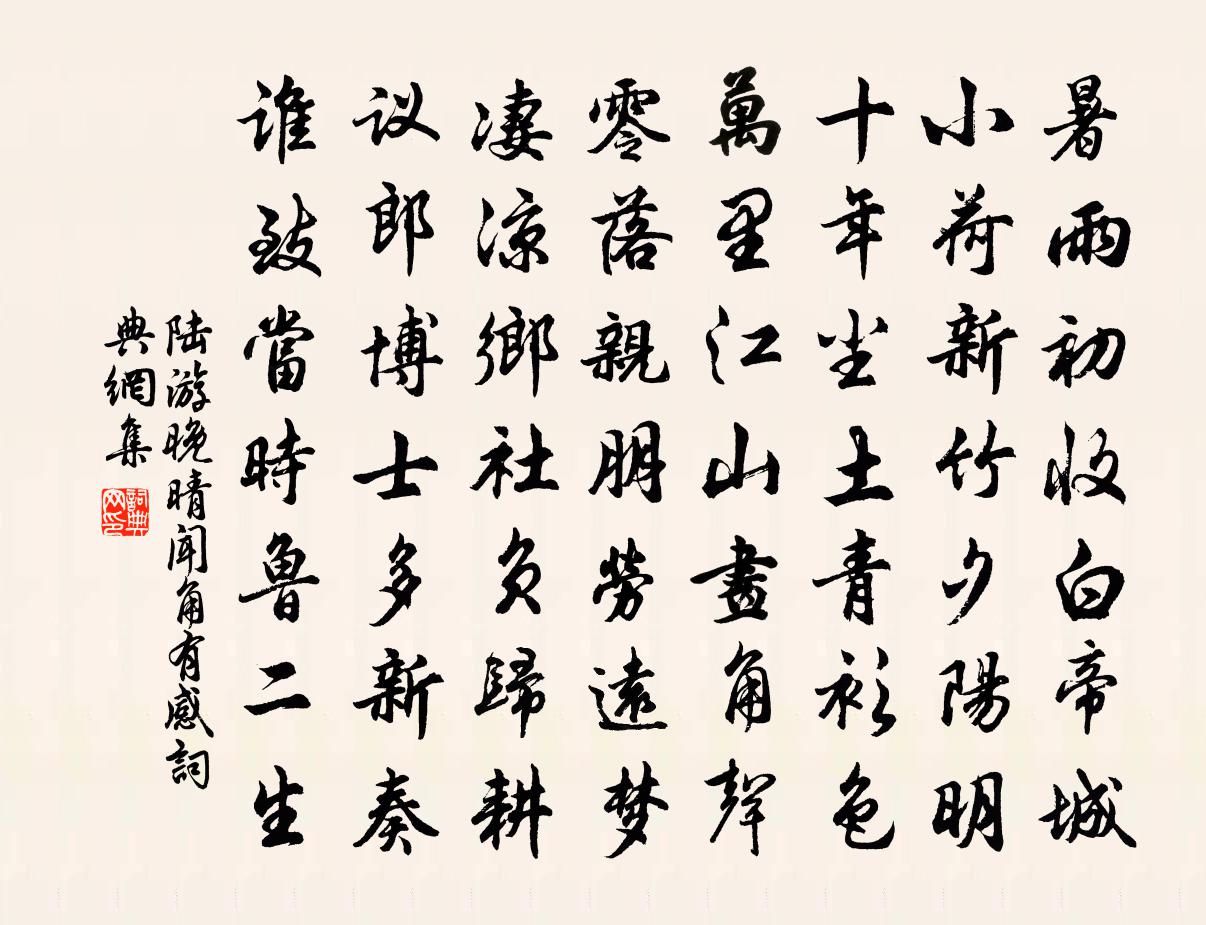 暑雨初收白帝城
小荷新竹夕陽明
十年尘土青衫色
萬里江山畫角聲
零落親朋勞遠梦
凄凉鄉社負歸耕
议郎博士多新奏
谁致當時魯二生
陆游晚晴闻角有感詞
典網集
詞典网印